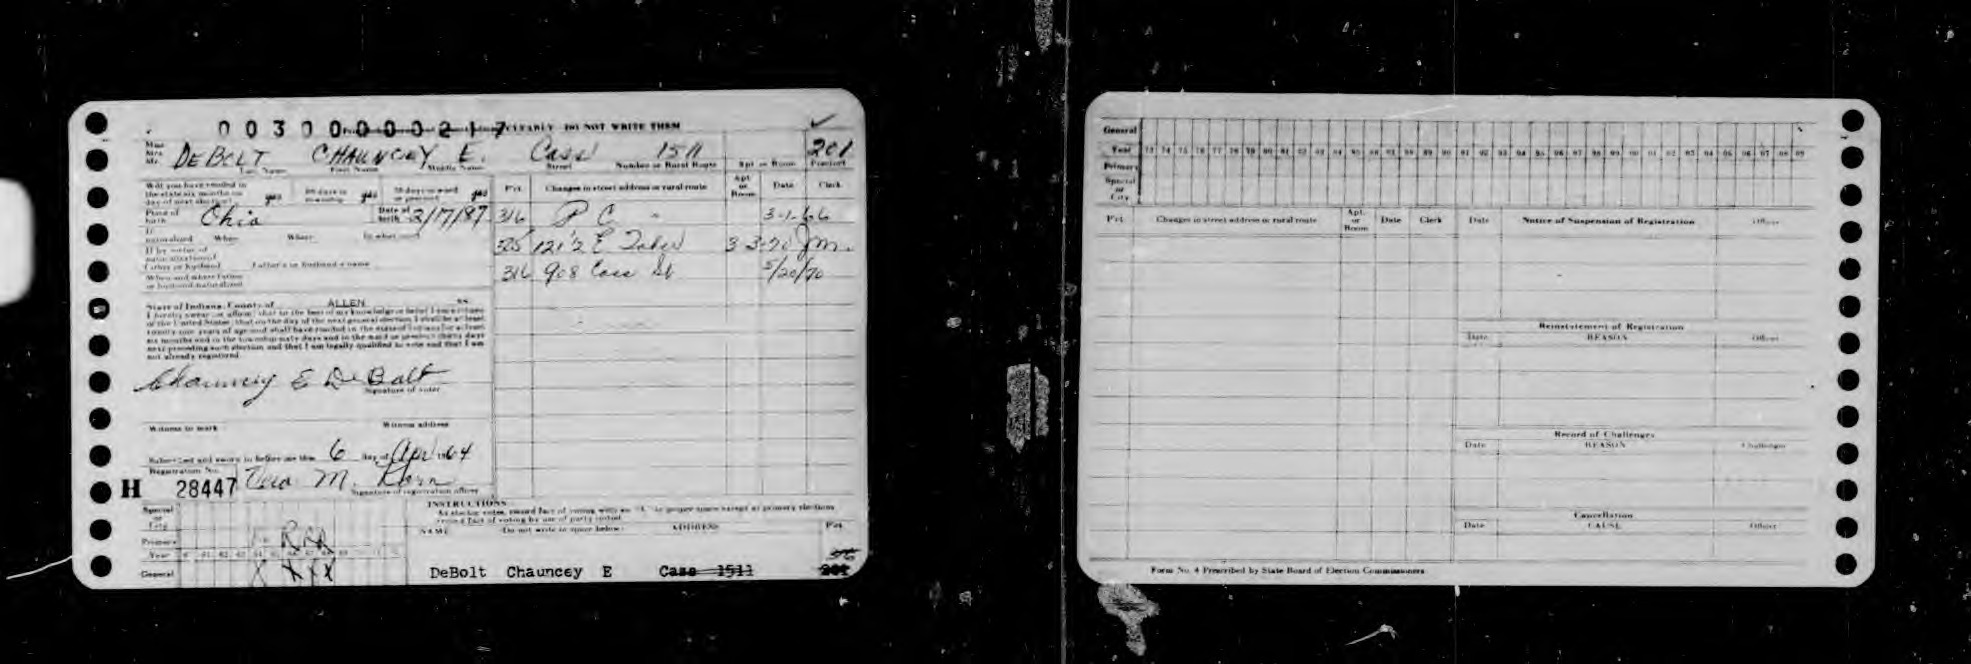 0 0 3 0 0 0 0 0 2 1 7 CLEARLY DO NOT WRITE THEM
Miss
Mrs.
Mr. DEBOLT CHAUNCEY E. Cass 1511 201
Last Name First Name Middle Name Street Number or Rural Route Apt. or Room Precinct
Will you have resided in
the state six months on
day of next election? yes 60 days in township yes 30 days in ward or precinct yes
Place of birth Ohio Date of birth 2/17/87
If naturalized When Where In what court
If by virtue of
naturalization of
father or husband Father's or husband's name
When and where father
or husband naturalized
Pct. Changes in street address or rural route Apt. or Room Date Clerk
316 P C 3-1-66
525 121 1/2 E 3-3-70
316 908 Cass St 5/20/70
State of Indiana, County of ALLEN ss
I hereby swear (or affirm) that to the best of my knowledge or belief I am a citizen
of the United States; that on the day of the next general election, I shall be at least
twenty-one years of age and shall have resided in the state of Indiana for at least
six months and in the township sixty days and in the ward or precinct thirty days
next preceding such election and that I am legally qualified to vote and that I am
not already registered
Chauncey E DeBolt
Signature of voter
Witness to mark Witness address
Subscribed and sworn to before me this 6 day of Apr 1964
Registration No.
H 28447 Vera M.
Signature of registration officer
Special
or
City
Primary R R R
Year
General X X X X
INSTRUCTIONS
As elector votes, record fact of voting with an "X" in proper space except at primary elections
record fact of voting by use of party initial.
NAME (Do not write in space below) ADDRESS Pct.
316
DeBolt Chauncey E Cass 1511 201
General
Year 73 74 75 76 77 78 79 80 81 82 83 84 85 86 87 88 89 90 91 92 93 94 95 96 97 98 99 00 01 02 03 04 05 06 07 08 09
Primary
Special
or
City
Pct. Changes in street address or rural route Apt. or Room Date Clerk Date Notice of Suspension of Registration Officer
Reinstatement of Registration
Date REASON Officer
Record of Challenges
Date REASON Challenger
Cancellation
Date CAUSE Officer
Form No. 4 Prescribed by State Board of Election Commissioners